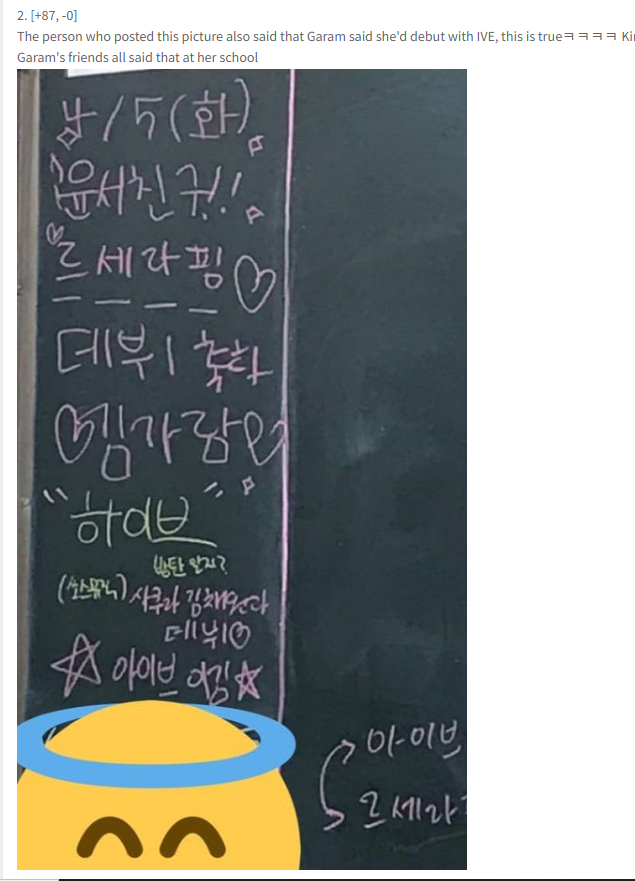 2. [+87, -0]
The person who posted this picture also said that Garam said she'd debut with IVE, this is trueㅋㅋㅋㅋ
Garam's friends all said that at her school
/5(화)
윤서친구!!
르세라핌♡
데뷔 축하
가람♡
"하이브"
방탄 알지?
(쏘스뮤직) 사쿠라 김채원이랑
데뷔♡
☆아이브 이김☆
아이브
르세라